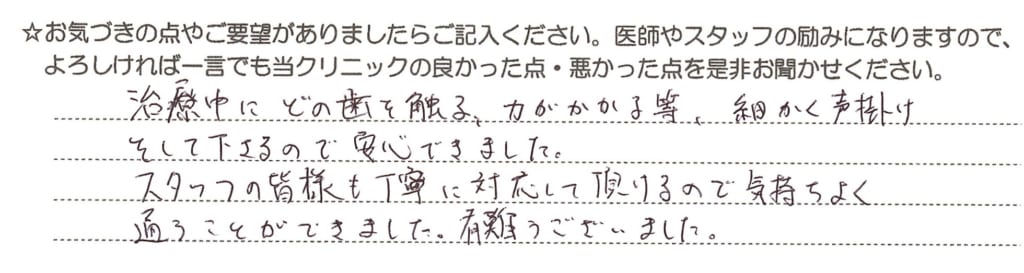 ☆お気づきの点やご要望がありましたらご記入ください。医師やスタッフの励みになりますので、
よろしければ一言でも当クリニックの良かった点・悪かった点を是非お聞かせください。
治療中に どの歯を触る、力がかかる等、細かく声掛け
そして下さるので 安心できました。
スタッフの皆様も丁寧に対応して頂けるので気持ちよく
通うことができました。有難うございました。